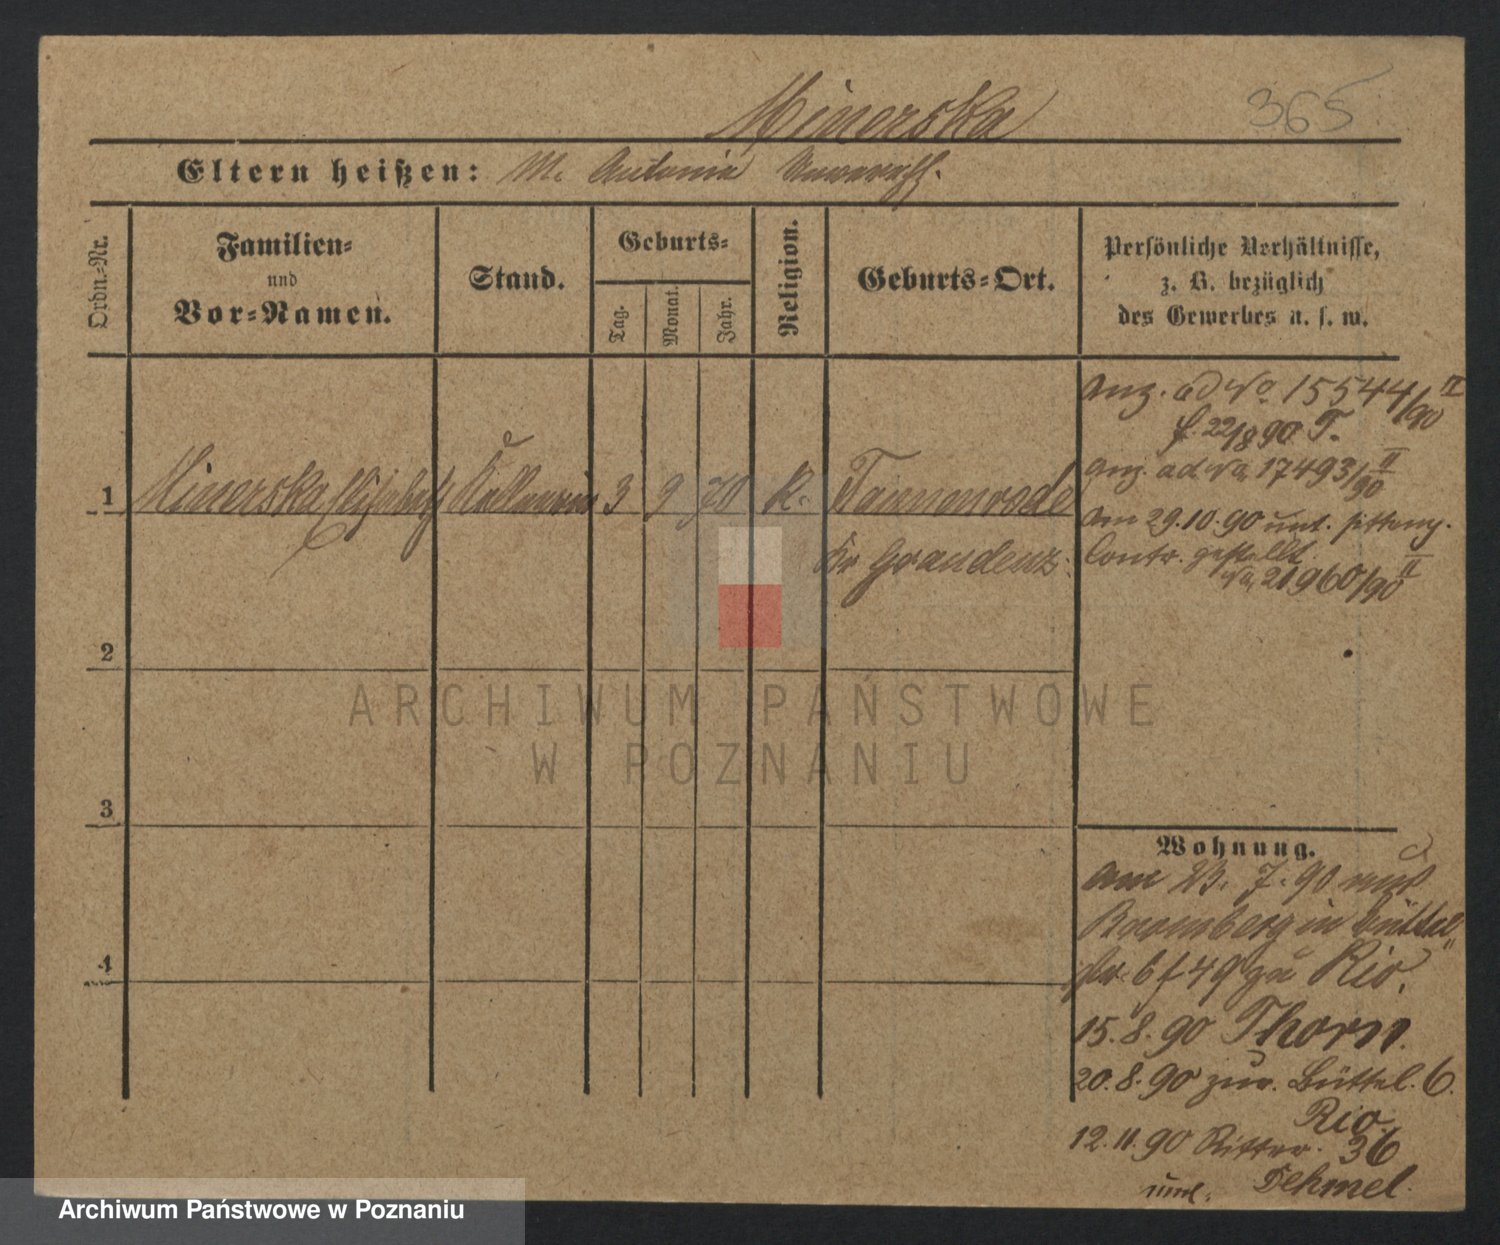 Minerska
365
Eltern heißen: M. Antonie
Ordn.-Nr.
Familien-
und
Vor-Namen.
Stand.
Geburts-
Tag.
Monat.
Jahr.
Religion.
Geburts-Ort.
Persönliche Verhältnisse,
z. B. bezüglich
des Gewerbes u. s. w.
Anz. ad No. 15544/90 II
f. 22/8 90 T.
Anz. ad No. 17493/90 II
1 Minerska Elisabeth Kellnerin 3 9 70 K. Tannenrode
Kr Graudenz.
am 29.10.90 unt. sitteng.
Contr. gestellt
No. 21960/90 II
2
3
4
Wohnung.
am 23. 7. 90 aus
Bromberg in Büttel
str. 6 f 49 zu Rio.
15.8.90 Thorn.
20.8.90 zur. Büttel. 6.
Rio.
12.11.90 Ritter. 36
Dehmel.
ARCHIWUM PAŃSTWOWE
W POZNANIU
Archiwum Państwowe w Poznaniu